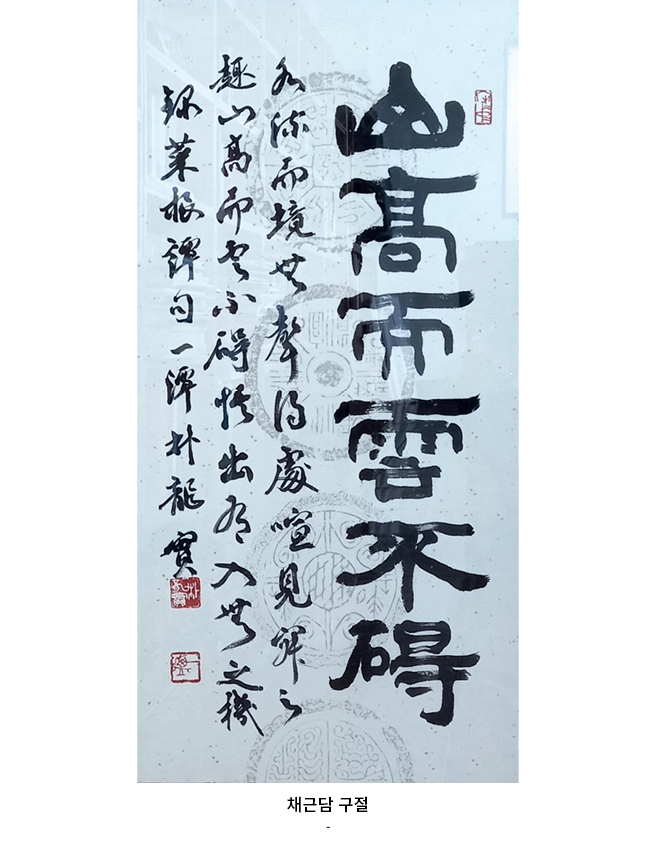 山高而雲不碍
水流而境無聲得處喧見寂之
趣山高而雲不碍悟出有入無之機
錄菜根譚句一潭朴龍實
채근담 구절
-